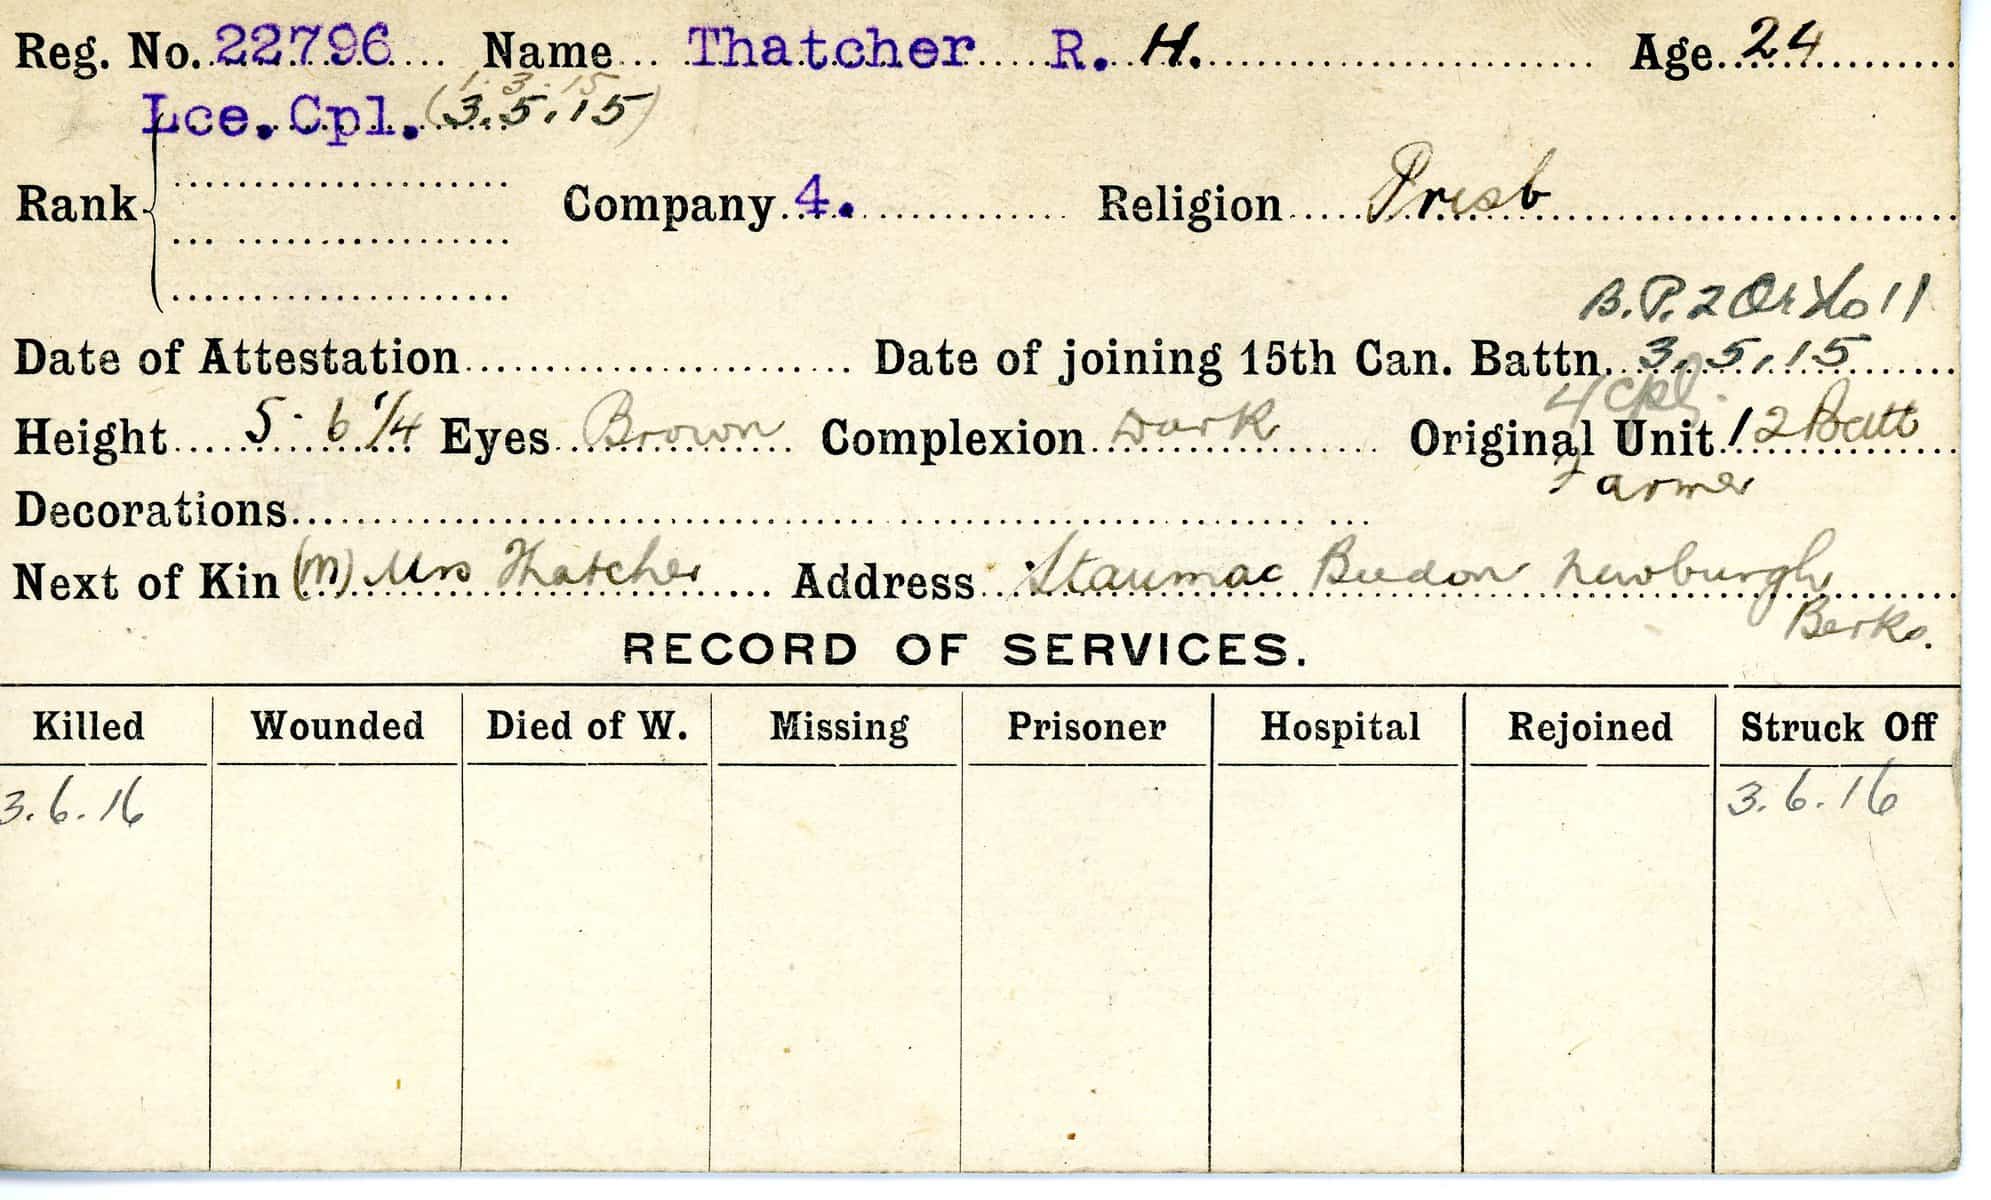 Reg. No. 22796 Name Thatcher R. H. Age 24
1.3.15
Lce. Cpl. (3.5.15)
Rank Company 4. Religion Presb
B.P. 2 Or No 11
Date of Attestation Date of joining 15th Can. Battn. 3.5.15
4 Cpl.
Height 5-6 1/4 Eyes Brown Complexion Dark Original Unit 12 Batt
Farmer
Decorations
Next of Kin (M) Mrs Thatcher Address Newburgh
Berks.
RECORD OF SERVICES.
Killed Wounded Died of W. Missing Prisoner Hospital Rejoined Struck Off
3.6.16 3.6.16